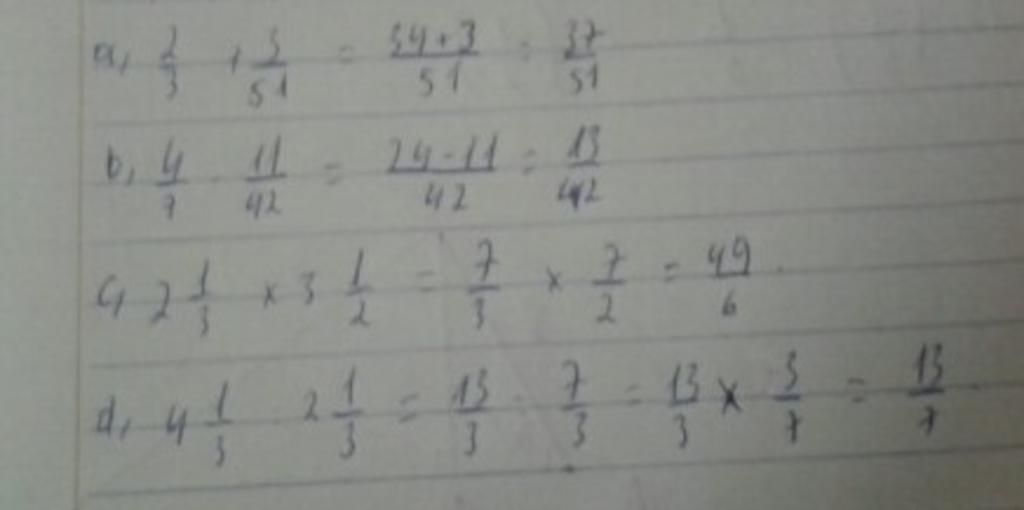 a, 2/3 + 3/51 = 34+3/51 = 37/51
b, 4/7 - 11/42 = 24-11/42 = 13/42
c, 2 1/3 x 3 1/2 = 7/3 x 7/2 = 49/6
d, 4 1/3 : 2 1/3 = 13/3 : 7/3 = 13/3 x 3/7 = 13/7